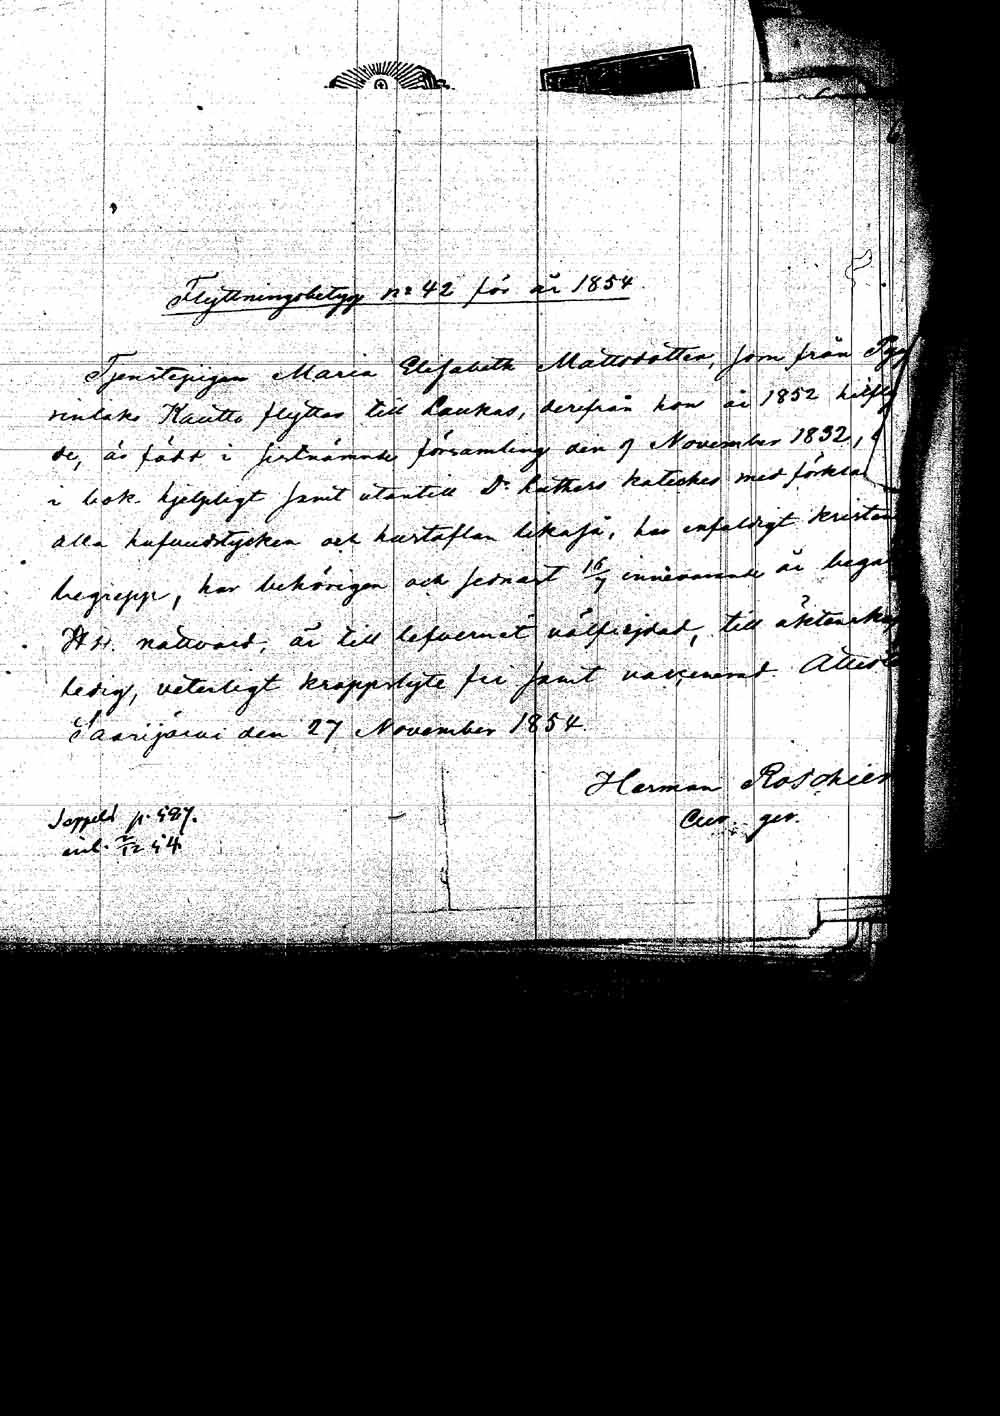 Flyttningsbetyg nr 42 för år 1854.
Tjenstepigan Maria Elisabeth Mattsdotter, som från
Kautto flyttas till Laukas, derifrån hon år 1852 hitfly
de, är född i sistnämnde församling den 9 November 1832,
i bok hjelpligt samt utantill Dr Luthers kateches med förkla
alla hufvudstycken och hustaflan likaså, har enfaldigt kristen
begrepp, har behörigen och sednast 16/7 innevarande år begå
H. H. nattvard, är till lefvernet välfrejdad, till äktenskap
ledig, veterligt kroppslyte fri samt vaccinerad. Attest
Saarijärvi den 27 November 1854.
Herman Roschier
p. 527.
inl. 2/12 54